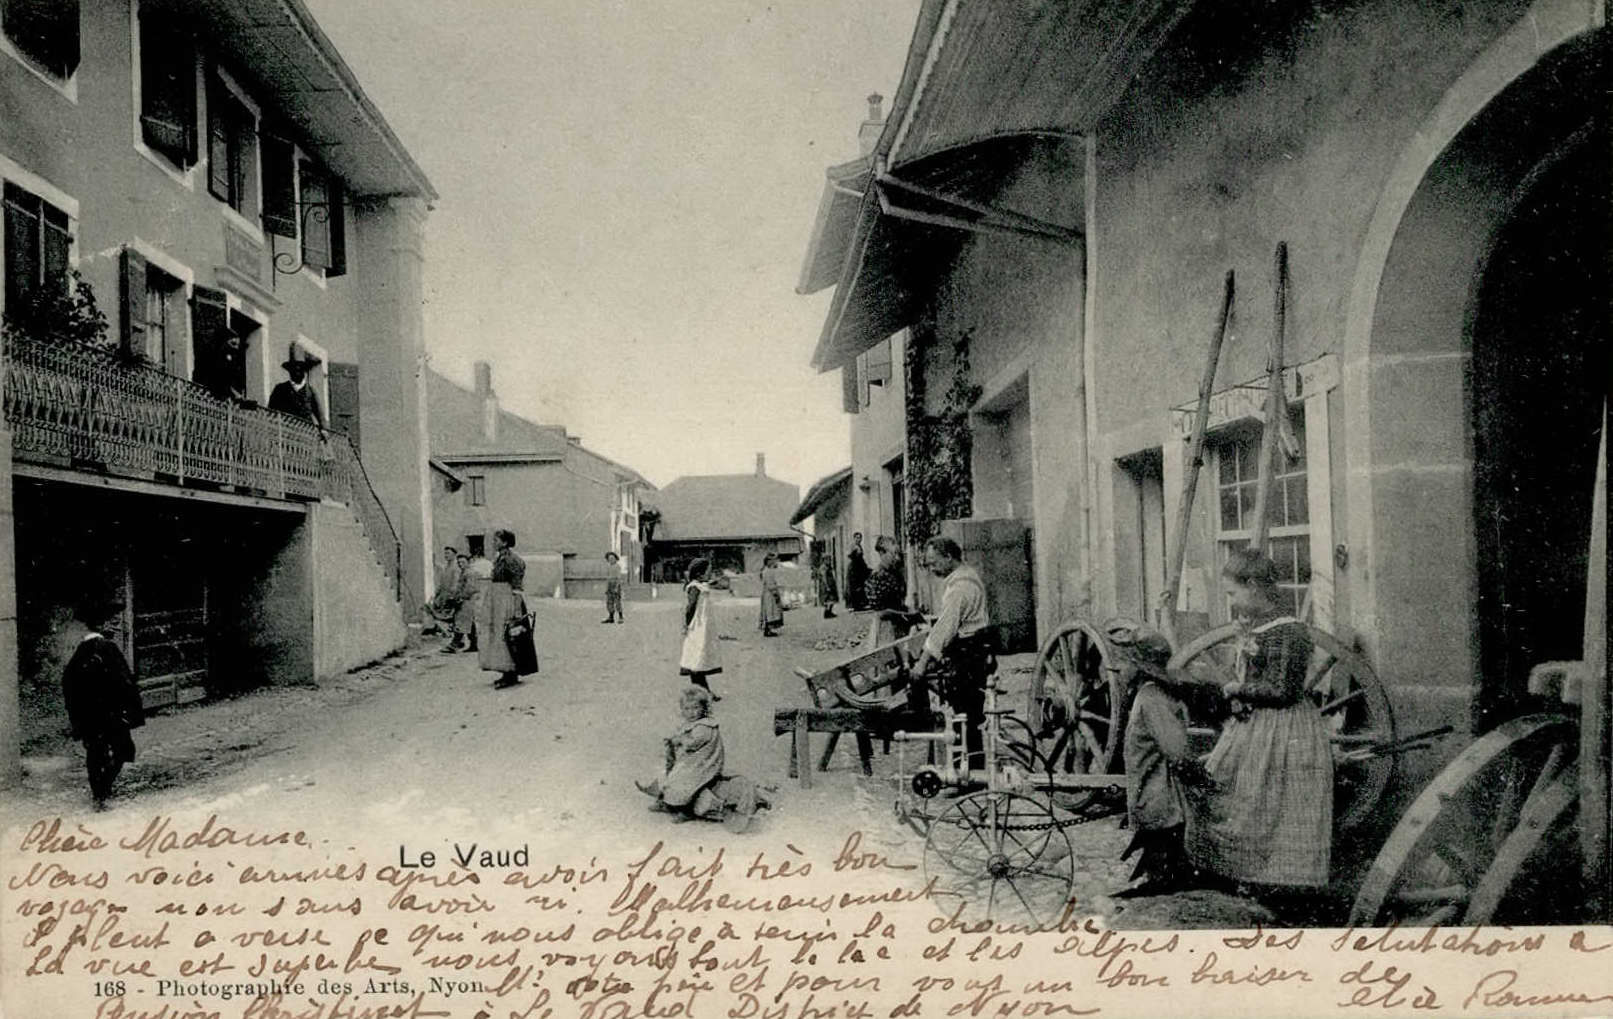 Chère Madame.
Le Vaud
Nous voici arrivés après avoir fait très bon
voyage non sans avoir ri. Malheureusement
il pleut a verse ce qui nous oblige à tenir la chambre
La vue est superbe nous voyons tout le lac et les Alpes. Des Salutations a
168 - Photographie des Arts, Nyon.
Mr votre père et pour vous un bon baiser de
Pension Christinet à Le Vaud District de Nyon